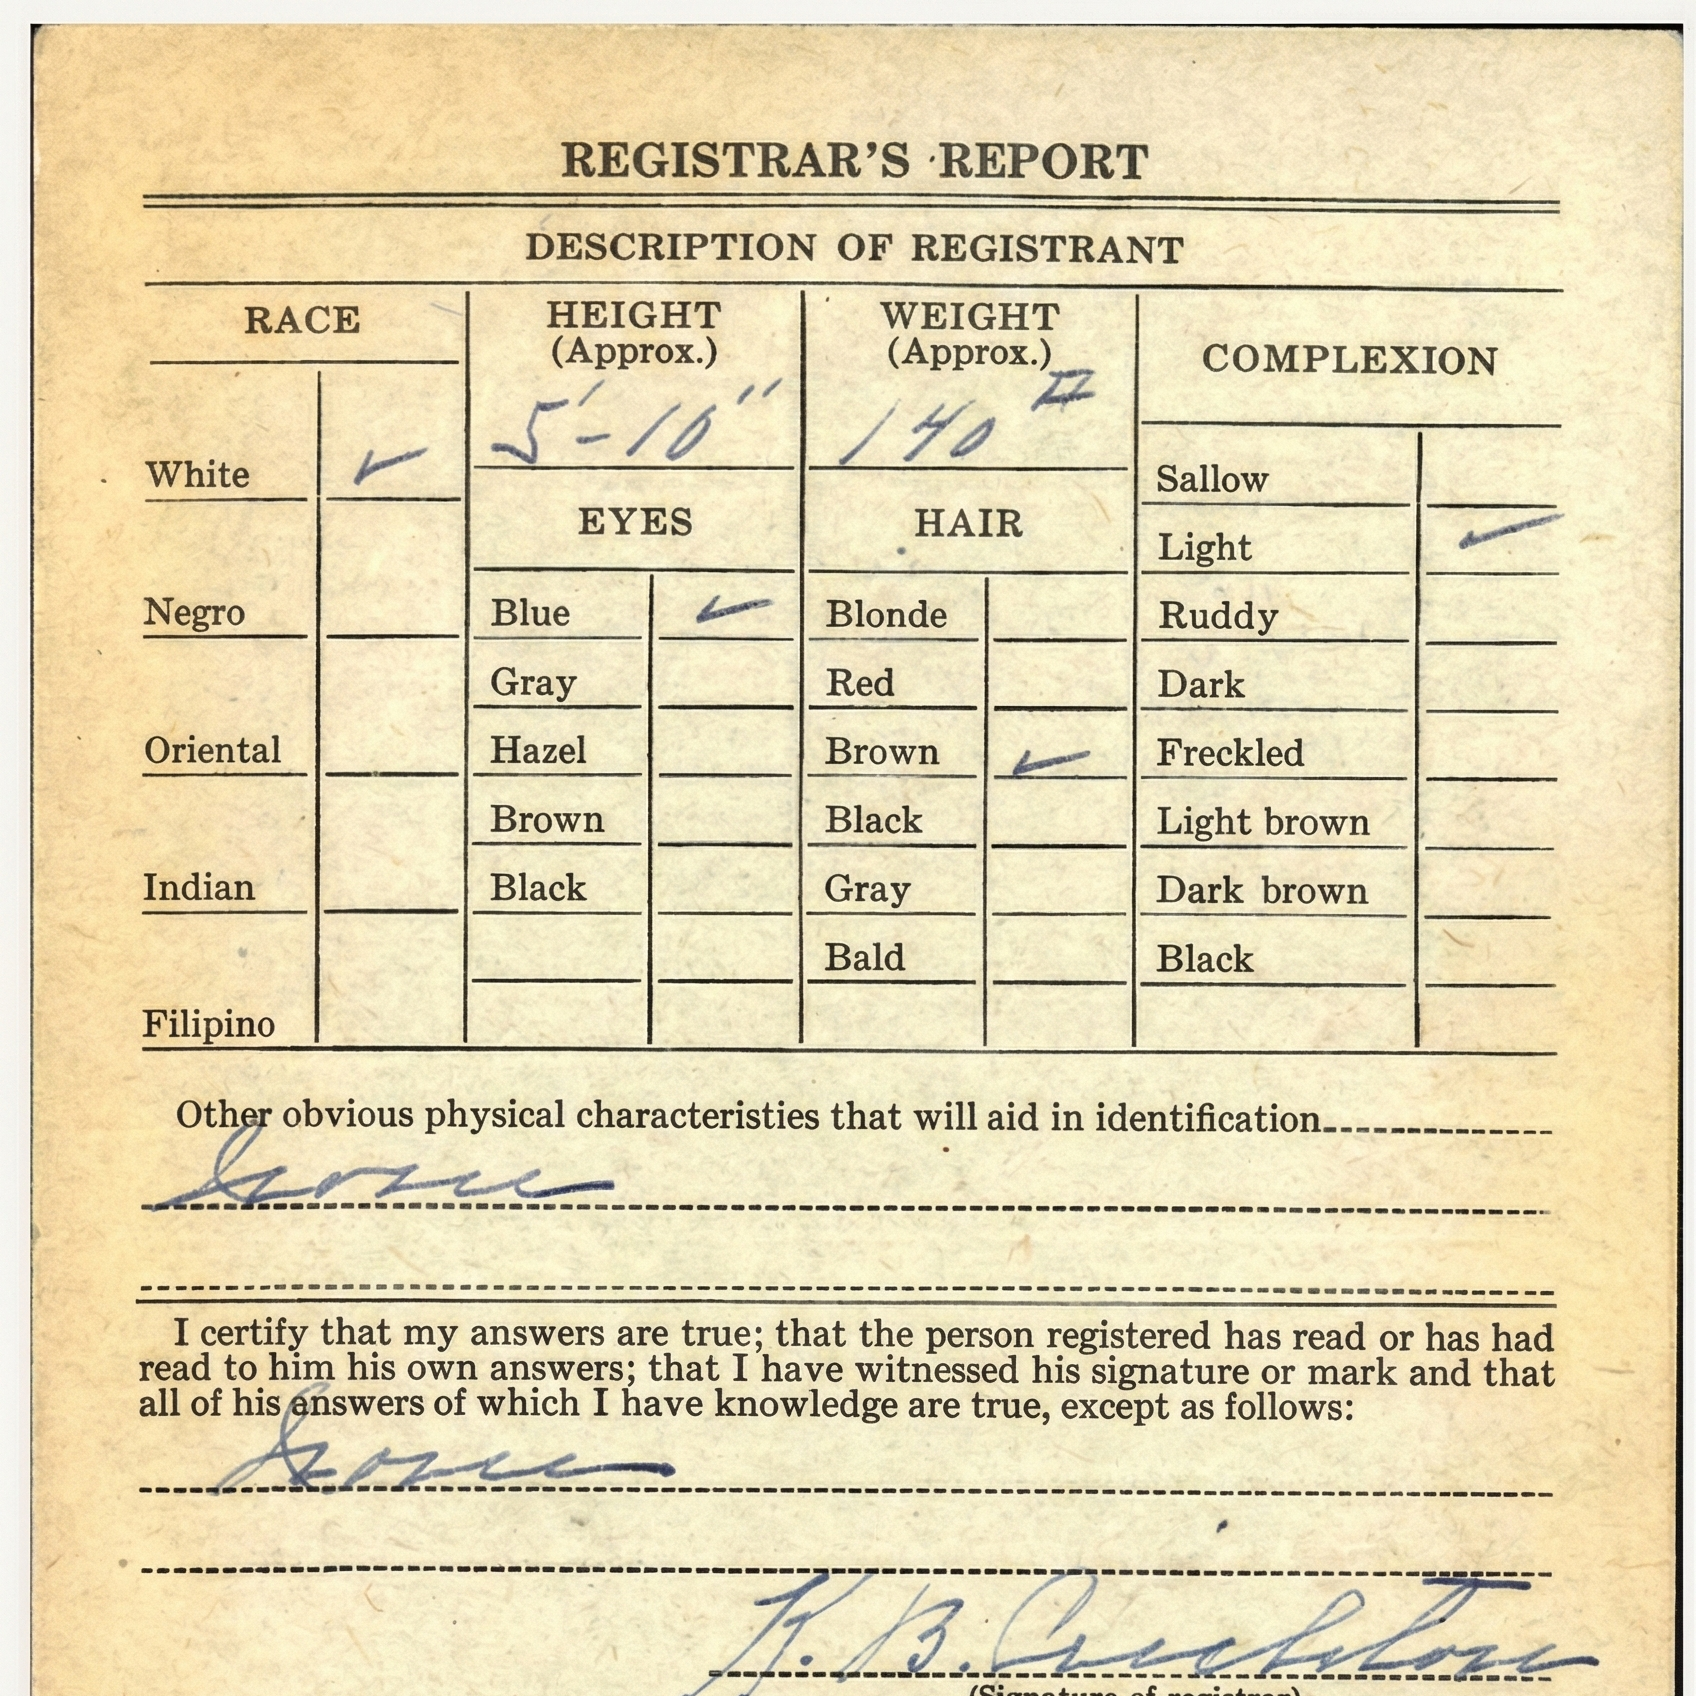 REGISTRAR'S REPORT
DESCRIPTION OF REGISTRANT
RACE
HEIGHT
(Approx.)
WEIGHT
(Approx.)
COMPLEXION
5'-10"
140 #
White ✓
EYES
HAIR
Sallow
Light ✓
Negro
Blue ✓
Blonde
Ruddy
Gray
Red
Dark
Oriental
Hazel
Brown ✓
Freckled
Brown
Black
Light brown
Indian
Black
Gray
Dark brown
Bald
Black
Filipino
Other obvious physical characteristies that will aid in identification
None
I certify that my answers are true; that the person registered has read or has had
read to him his own answers; that I have witnessed his signature or mark and that
all of his answers of which I have knowledge are true, except as follows:
None
K. B.
(Signature of registrar)